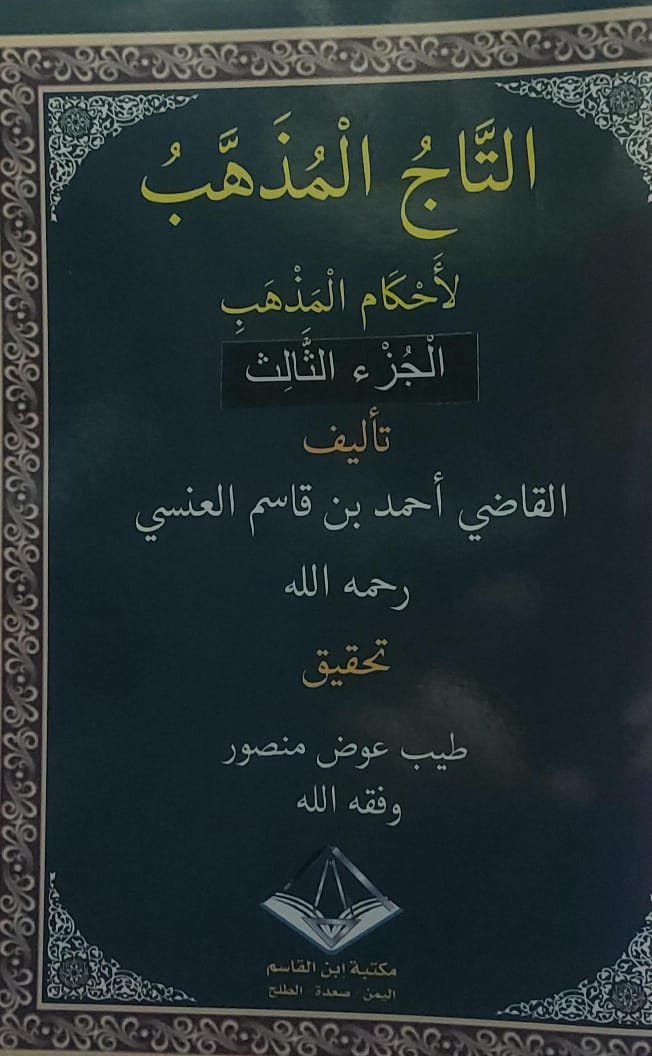 التَّاجُ الْمُذَهَّبُ
لأَحْكَام الْمَذْهَبِ
الْجُزْء الثَّالِث
تأليف
القاضي أحمد بن قاسم العنسي
رحمه الله
تحقيق
طيب عوض منصور
وفقه الله
مكتبة إبن القاسم
اليمن - صعدة - الطلح